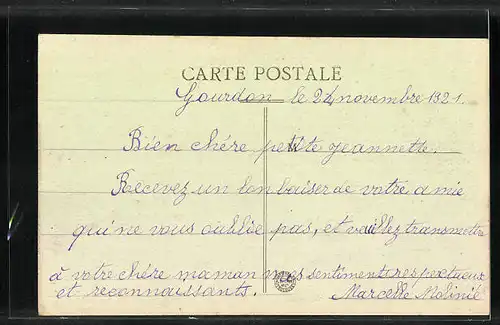 CARTE POSTALE
Gourdon le 24 novembre 1921.
Bien chére petite jeannette.
Recevez un bon baiser de votre amie
qui ne vous oublie pas, et veuillez transmettre
à votre chére maman mes sentiments respectueux
et reconnaissants. Marcelle Molinié